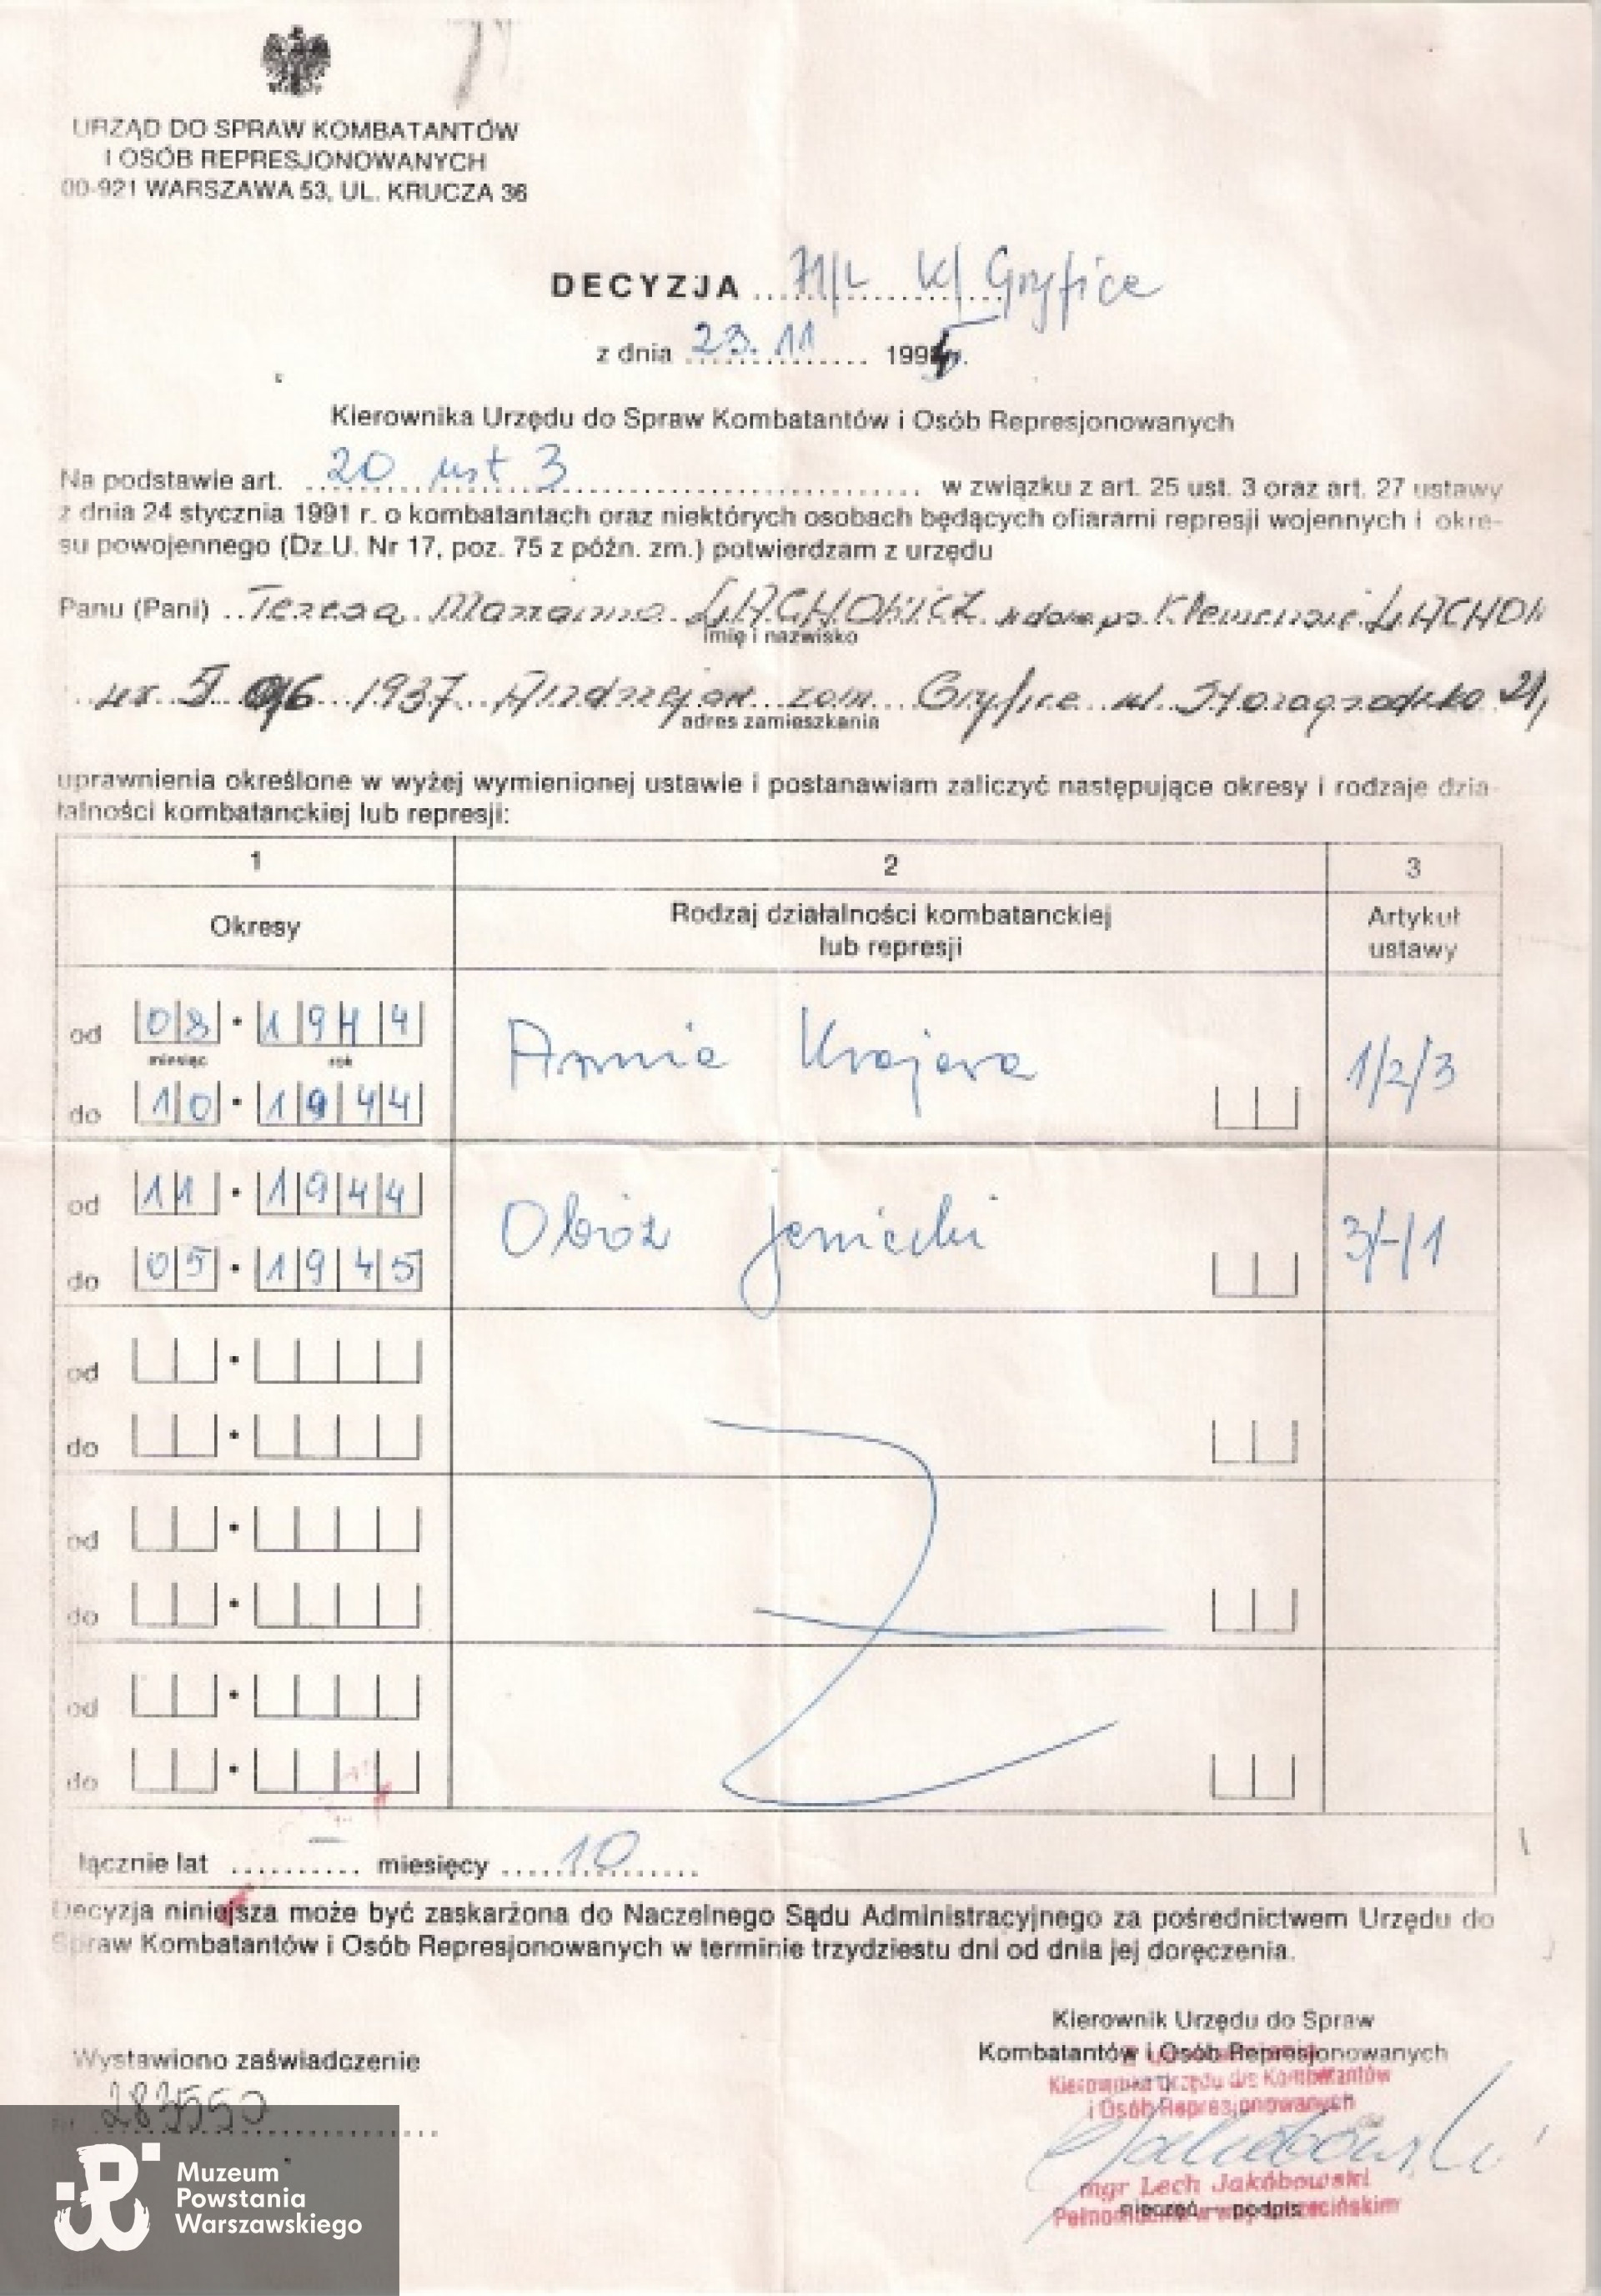 URZĄD DO SPRAW KOMBATANTÓW
I OSÓB REPRESJONOWANYCH
00-921 WARSZAWA 53, UL. KRUCZA 36
DECYZJA K/Gryfice
z dnia 23.11 1995 r.
Kierownika Urzędu do Spraw Kombatantów i Osób Represjonowanych
Na podstawie art. 20 ust 3 w związku z art. 25 ust. 3 oraz art. 27 ustawy
z dnia 24 stycznia 1991 r. o kombatantach oraz niektórych osobach będących ofiarami represji wojennych i okre-
su powojennego (Dz.U. Nr 17, poz. 75 z późn. zm.) potwierdzam z urzędu
Panu (Pani) Teresa Marianna ŁACHOWICZ wdowa po Klemensie ŁACHOW
imię i nazwisko
ur. 5 06 1937 zam. Gryfice ul. 21,
adres zamieszkania
uprawnienia określone w wyżej wymienionej ustawie i postanawiam zaliczyć następujące okresy i rodzaje dzia-
łalności kombatanckiej lub represji:
1 2 3
Okresy Rodzaj działalności kombatanckiej lub represji Artykuł ustawy
od 08 • 1944
miesiąc rok
Armia Krajowa 1/2/3
do 10 • 1944
od 11 • 1944
Obóz jeniecki 3/-/1
do 05 • 1945
od •
do •
od •
do •
od •
do •
łącznie lat – miesięcy 10
Decyzja niniejsza może być zaskarżona do Naczelnego Sądu Administracyjnego za pośrednictwem Urzędu do
Spraw Kombatantów i Osób Represjonowanych w terminie trzydziestu dni od dnia jej doręczenia.
Kierownik Urzędu do Spraw
Kombatantów i Osób Represjonowanych
Kierownika Urzędu d/s Kombatantów
i Osób Represjonowanych
Wystawiono zaświadczenie
mgr Lech Jakóbowski
pieczęć – podpis
Muzeum
Powstania
Warszawskiego